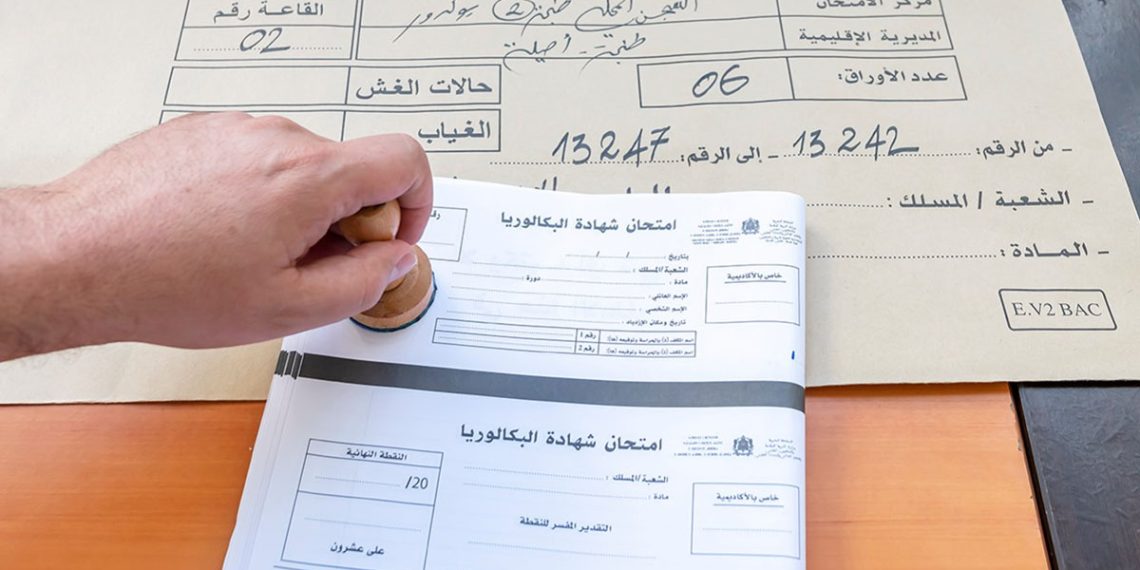 مركز الامتحان
القاعة رقم 02
المديرية الإقليمية طنجة - أصيلة
عدد الأوراق: 06
حالات الغش
الغياب
- من الرقم: 13242 - إلى الرقم: 13247
- الشعبة / المسلك :
- المادة :
E.V2 BAC
امتحان شهادة البكالوريا
خاص بالأكاديمية
بتاريخ : / /
الشعبة/المسلك :
مادة : دورة :
الإسم العائلي :
الإسم الشخصي :
تاريخ ومكان الإزدياد :
رقم 1
رقم 2
امتحان شهادة البكالوريا
خاص بالأكاديمية
الشعبة/المسلك :
مادة :
التقدير المفسر للنقطة
النقطة النهائية
/20
على عشرون